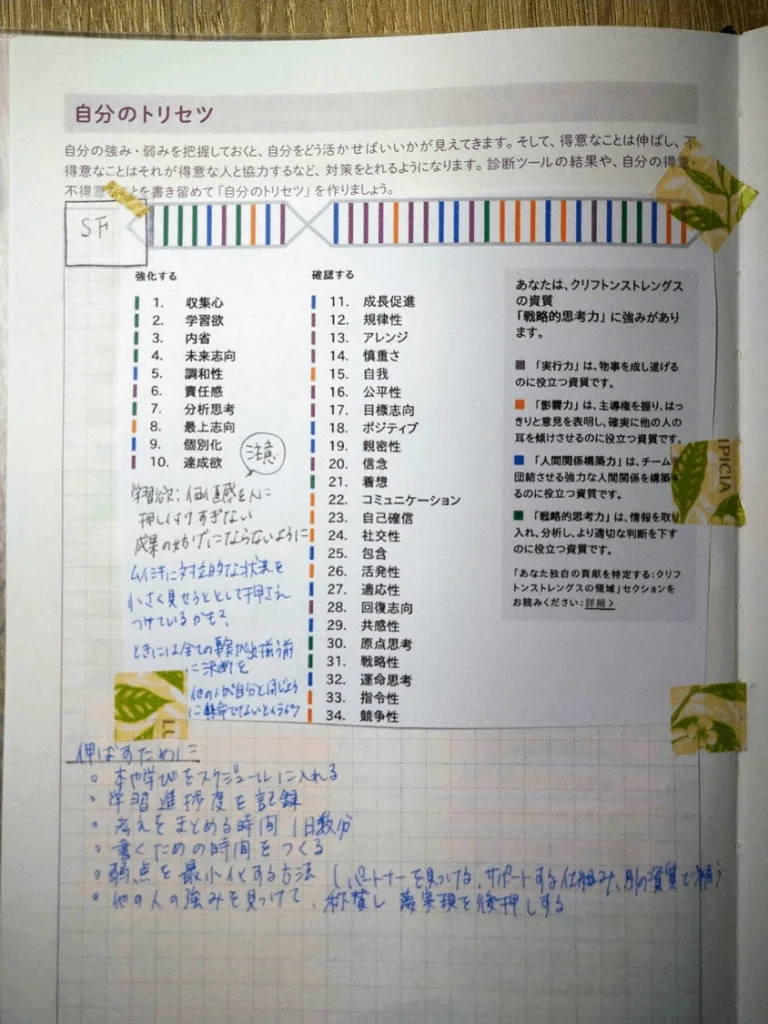 自分のトリセツ
自分の強み・弱みを把握しておくと、自分をどう活かせばいいかが見えてきます。そして、得意なことは伸ばし、不
得意なことはそれが得意な人と協力するなど、対策をとれるようになります。診断ツールの結果や、自分の得意・
不得意なことを書き留めて「自分のトリセツ」を作りましょう。
SF
強化する
1. 収集心
2. 学習欲
3. 内省
4. 未来志向
5. 調和性
6. 責任感
7. 分析思考
8. 最上志向
9. 個別化
10. 達成欲
注意
学習欲:価値感を人に
押し付けすぎない
成果の妨げにならないように
ムイシキに対立的な状況を
小さく見せようとして押さえ
つけているかも?
ときには全ての事実が出揃う前
に決断を
他の人が自分と同じように
に懸命でないとイライラ
確認する
11. 成長促進
12. 規律性
13. アレンジ
14. 慎重さ
15. 自我
16. 公平性
17. 目標志向
18. ポジティブ
19. 親密性
20. 信念
21. 着想
22. コミュニケーション
23. 自己確信
24. 社交性
25. 包含
26. 活発性
27. 適応性
28. 回復志向
29. 共感性
30. 原点思考
31. 戦略性
32. 運命思考
33. 指令性
34. 競争性
あなたは、クリフトンストレングス
の資質
「戦略的思考力」に強みがあり
ます。
「実行力」は、物事を成し遂げる
のに役立つ資質です。
「影響力」は、主導権を握り、はっ
きりと意見を表明し、確実に他の人の
耳を傾けさせるのに役立つ資質です。
「人間関係構築力」は、チーム
団結させる強力な人間関係を構築
るのに役立つ資質です。
「戦略的思考力」は、情報を取り
入れ、分析し、より適切な判断を下す
のに役立つ資質です。
「あなた独自の貢献を特定する:クリフ
トンストレングスの領域」セクションを
お読みください:詳細>
PICIA
伸ばすために
・本や学びをスケジュールに入れる
・学習進捗度を記録
・考えをまとめる時間 1日数分
・書くための時間をつくる
・弱点を最小化する方法（パートナーを見つける、サポートする仕組み、別の資質で補う
・他の人の強みを見つけて、称賛し 夢実現を後押しする